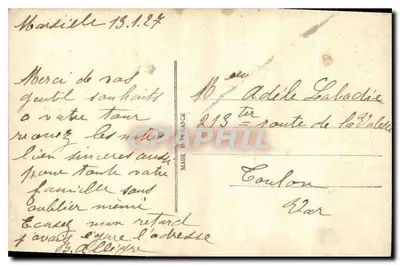 Marseille 13.1.27
Merci de vos
gentil souhaits
a votre tour
recevez les notre
bien sinceres aussi
pour toute votre
famille sans
oublier mémé
Excusez mon retard
j'avais égaré l'adresse
B. Allègre
MADE IN FRANCE
CPAPHIL
Melle Adèle Labadie
213 ter route de la Valette
Toulon
Var